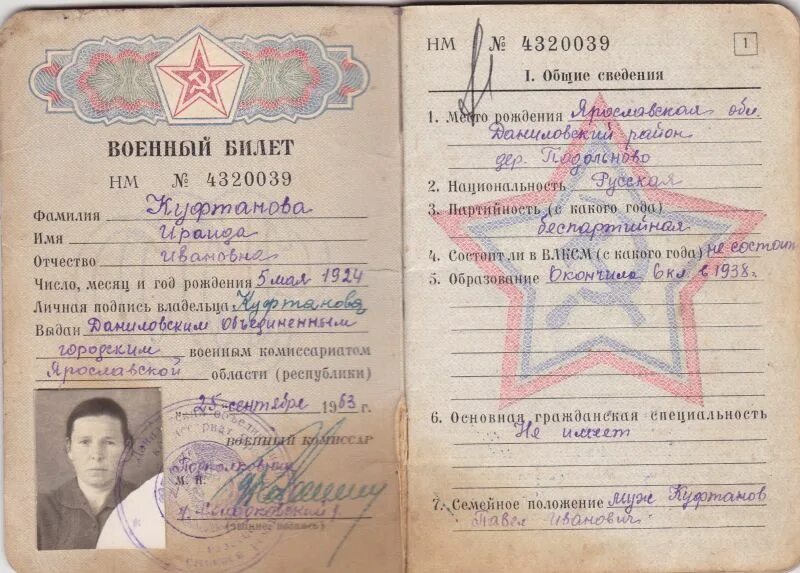 ВОЕННЫЙ БИЛЕТ
НМ № 4320039
Фамилия Куфтанова
Имя Ираида
Отчество Ивановна
Число, месяц и год рождения 5 мая 1924
Личная подпись владельца Куфтанова
Выдан Даниловским Объединенным
городским военным комиссариатом
Ярославской области (республики)
25 сентябре 1963 г.
ВОЕННЫЙ КОМИССАР
Подполковник
М. П.
НМ № 4320039
1
I. Общие сведения
1. Место рождения Ярославская обл.
Даниловский район
дер. Подольново
2. Национальность Русская
3. Партийность (с какого года)
беспартийная
4. Состоит ли в ВЛКСМ (с какого года) не состоит
5. Образование Окончила 6 кл. в 1938 г.
6. Основная гражданская специальность
Не имеет
7. Семейное положение муж Куфтанов
Павел Иванович